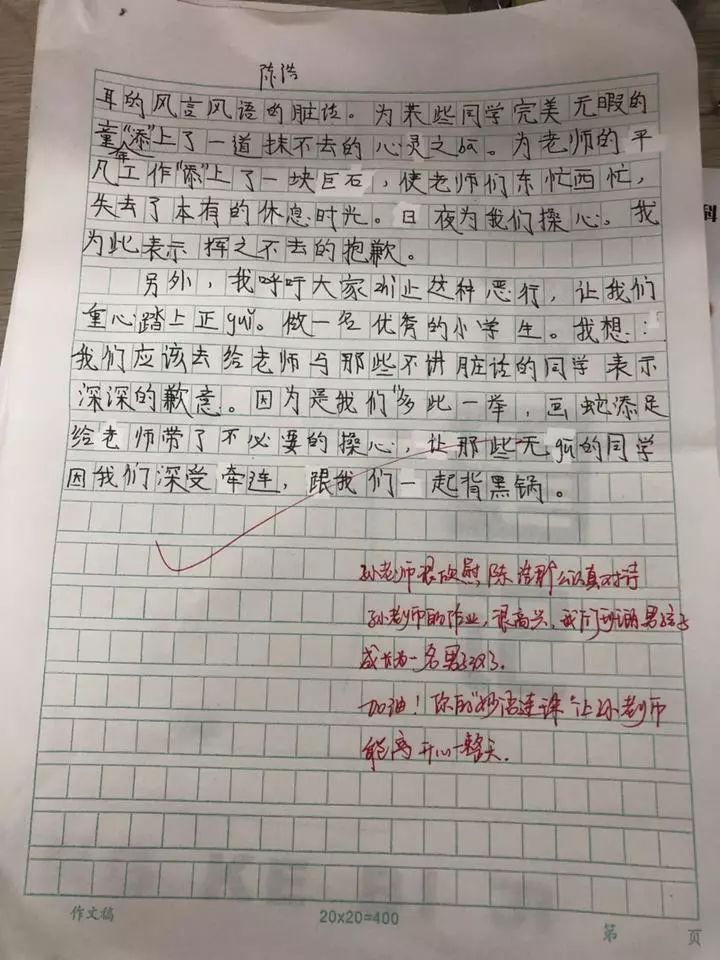 陈浩
耳的风言风语的脏话。为某些同学完美无暇的
童年"添"上了一道抹不去的心灵之ba。为老师的平
凡工作"添"上了一块巨石，使老师们东忙西忙，
失去了本有的休息时光。日夜为我们操心。我
为此表示挥之不去的抱歉。
另外，我呼吁大家制止这种恶行，让我们
重心踏上正gui。做一名优秀的小学生。我想：
我们应该去给老师与那些不讲脏话的同学表示
深深的歉意。因为是我们"多此一举，画蛇添足
给老师带了不必要的操心，让那些无gu的同学
因我们深受牵连，跟我们一起背黑锅。
孙老师很欣慰陈浩那么认真对待
孙老师的作业，很高兴，我们班的男孩子
成长为一名男子汉了.
加油！你的"妙语连珠"让孙老师
能高开心一整天.
作文稿
20x20=400
第 页